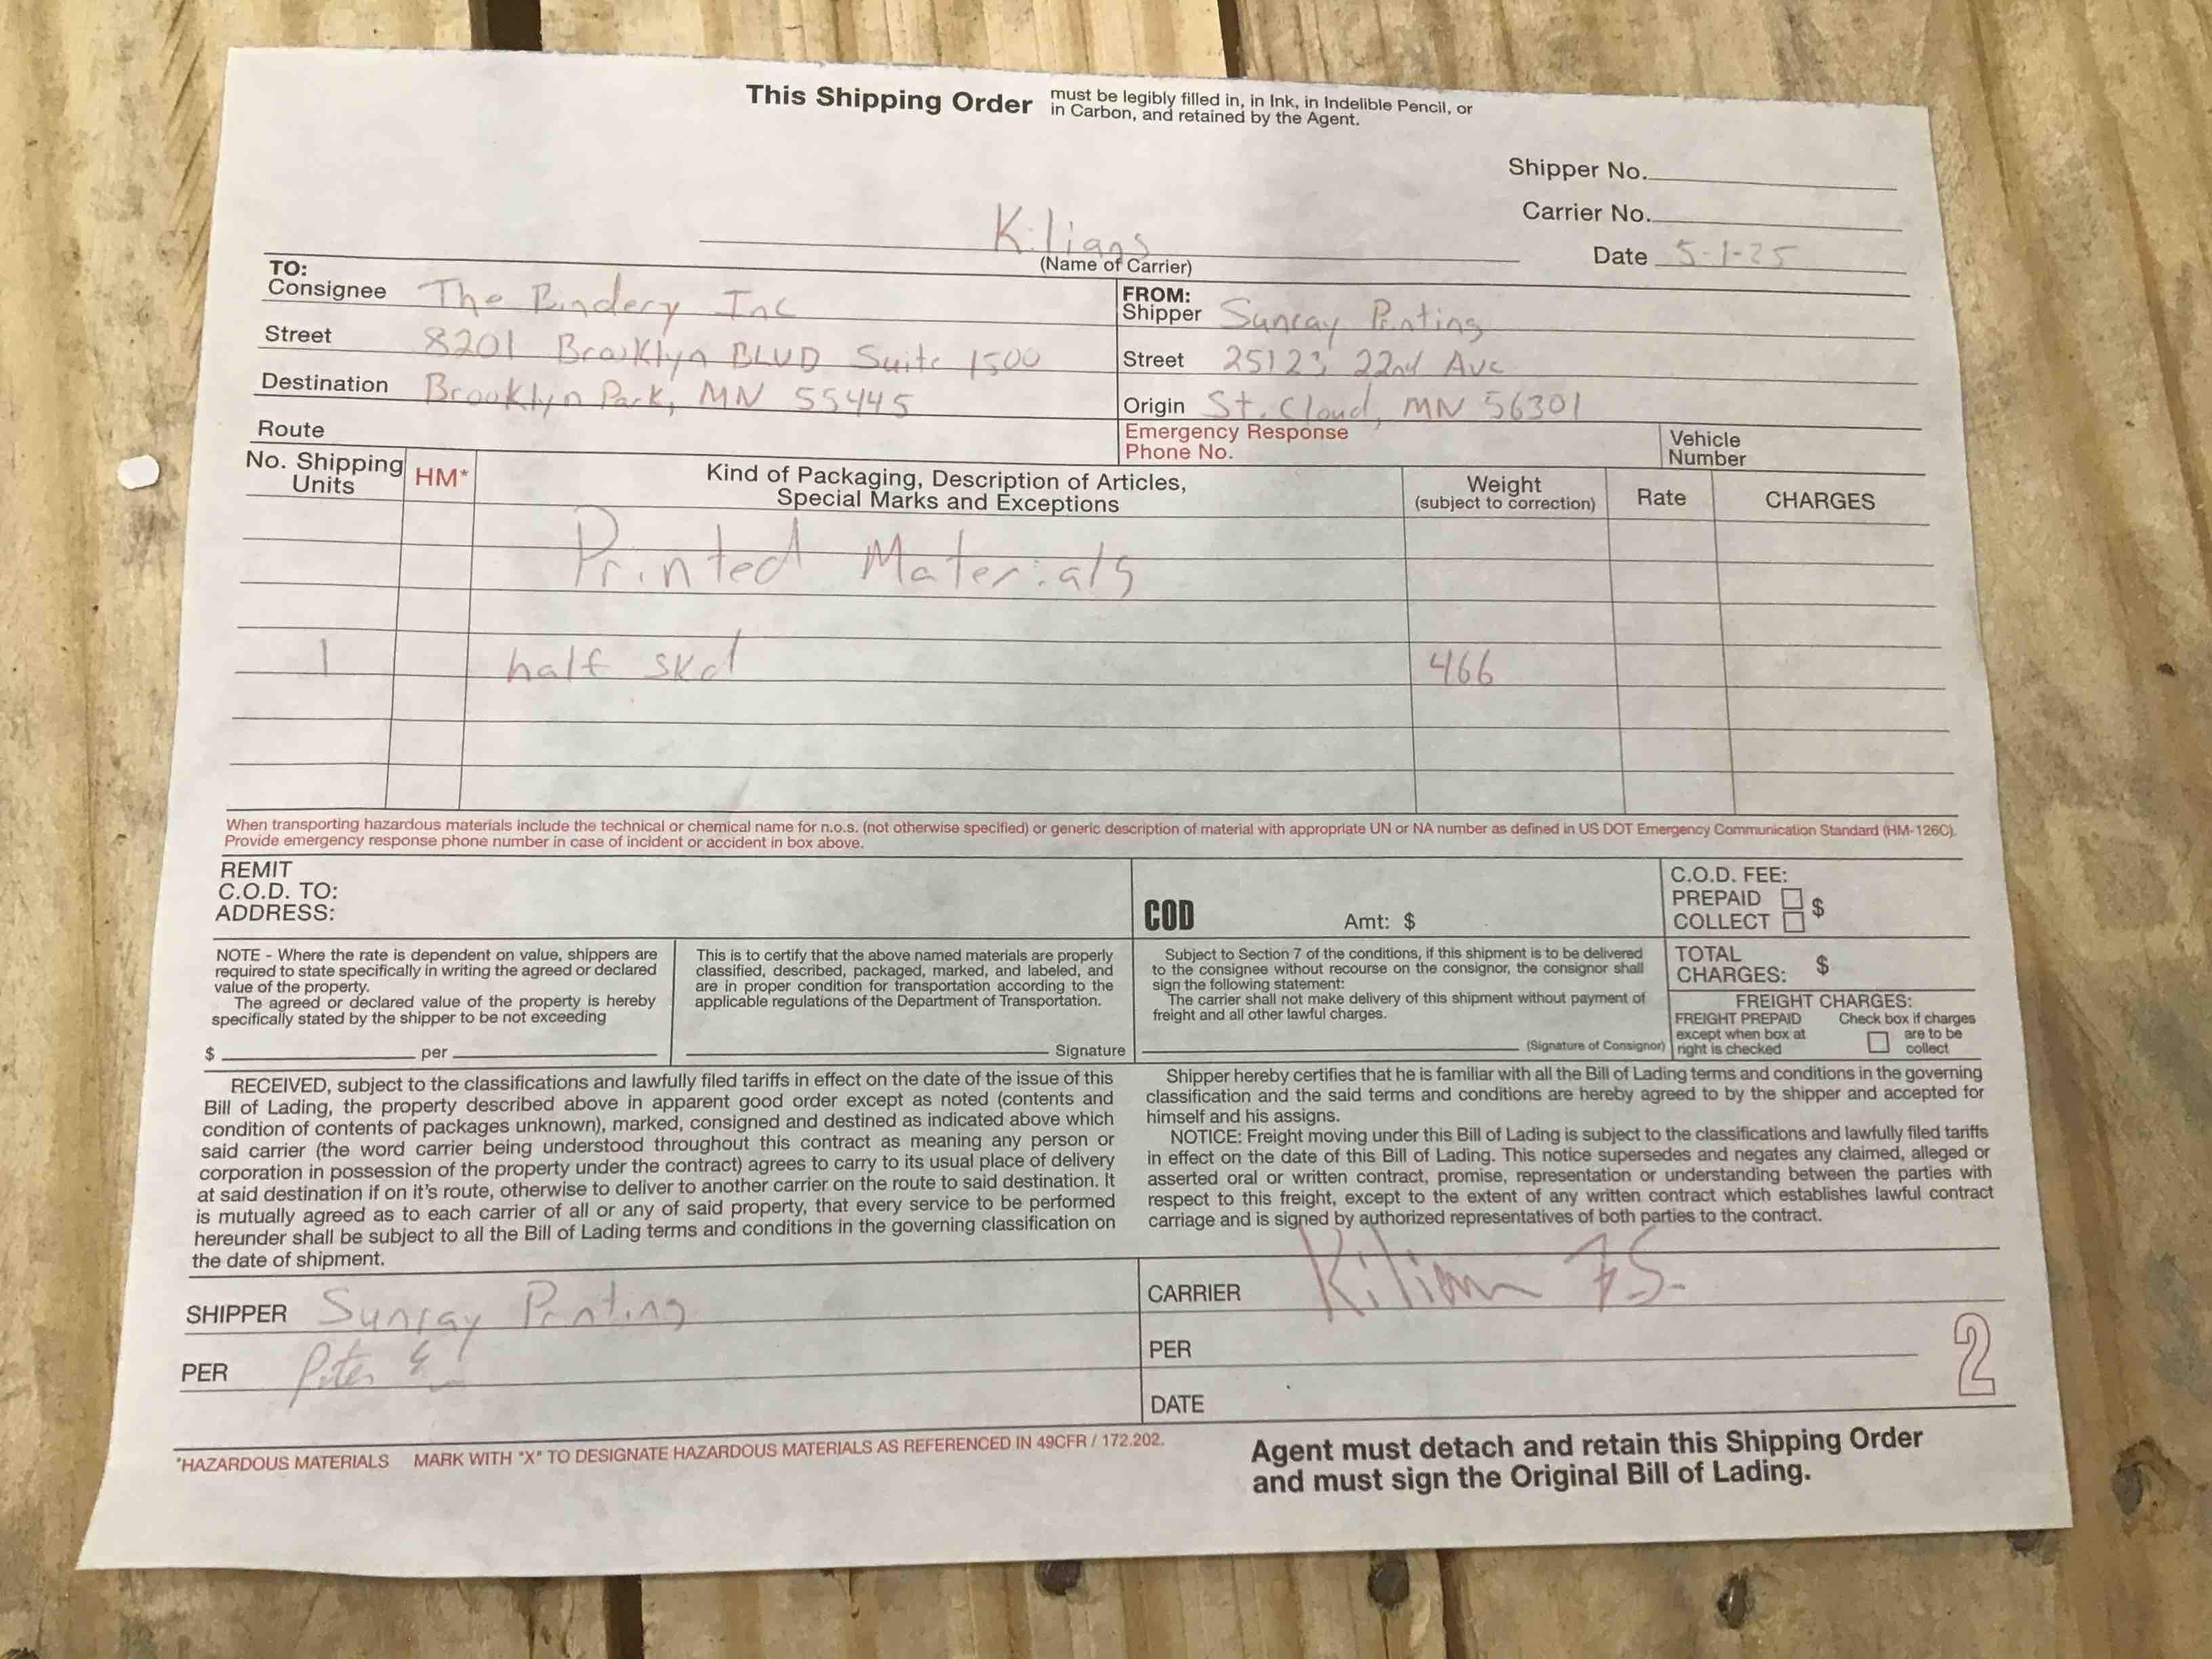 This Shipping Order must be legibly filled in, in Ink, in Indelible Pencil, or
in Carbon, and retained by the Agent.
Shipper No.
Carrier No.
Date 5-1-25
Kilians
(Name of Carrier)
TO:
Consignee The Bindery Inc
Street 8201 Brooklyn BLVD Suite 1500
Destination Brooklyn Park, MN 55445
Route
FROM:
Shipper Sunray Printing
Street 25123 22nd Ave
Origin St. Cloud, MN 56301
Emergency Response
Phone No.
Vehicle
Number
No. Shipping
Units
HM*
Kind of Packaging, Description of Articles,
Special Marks and Exceptions
Weight
(subject to correction)
Rate
CHARGES
Printed Materials
1 half skd 466
When transporting hazardous materials include the technical or chemical name for n.o.s. (not otherwise specified) or generic description of material with appropriate UN or NA number as defined in US DOT Emergency Communication Standard (HM-126C).
Provide emergency response phone number in case of incident or accident in box above.
REMIT
C.O.D. TO:
ADDRESS:
COD Amt: $
C.O.D. FEE:
PREPAID $
COLLECT
NOTE - Where the rate is dependent on value, shippers are
required to state specifically in writing the agreed or declared
value of the property.
The agreed or declared value of the property is hereby
specifically stated by the shipper to be not exceeding
$ per
This is to certify that the above named materials are properly
classified, described, packaged, marked, and labeled, and
are in proper condition for transportation according to the
applicable regulations of the Department of Transportation.
Signature
Subject to Section 7 of the conditions, if this shipment is to be delivered
to the consignee without recourse on the consignor, the consignor shall
sign the following statement:
The carrier shall not make delivery of this shipment without payment of
freight and all other lawful charges.
(Signature of Consignor)
TOTAL
CHARGES: $
FREIGHT CHARGES:
FREIGHT PREPAID
except when box at
right is checked
Check box if charges
are to be
collect
RECEIVED, subject to the classifications and lawfully filed tariffs in effect on the date of the issue of this
Bill of Lading, the property described above in apparent good order except as noted (contents and
condition of contents of packages unknown), marked, consigned and destined as indicated above which
said carrier (the word carrier being understood throughout this contract as meaning any person or
corporation in possession of the property under the contract) agrees to carry to its usual place of delivery
at said destination if on it's route, otherwise to deliver to another carrier on the route to said destination. It
is mutually agreed as to each carrier of all or any of said property, that every service to be performed
hereunder shall be subject to all the Bill of Lading terms and conditions in the governing classification on
the date of shipment.
Shipper hereby certifies that he is familiar with all the Bill of Lading terms and conditions in the governing
classification and the said terms and conditions are hereby agreed to by the shipper and accepted for
himself and his assigns.
NOTICE: Freight moving under this Bill of Lading is subject to the classifications and lawfully filed tariffs
in effect on the date of this Bill of Lading. This notice supersedes and negates any claimed, alleged or
asserted oral or written contract, promise, representation or understanding between the parties with
respect to this freight, except to the extent of any written contract which establishes lawful contract
carriage and is signed by authorized representatives of both parties to the contract.
SHIPPER Sunray Printing
PER Peter
CARRIER Kilian
PER
DATE
2
*HAZARDOUS MATERIALS MARK WITH "X" TO DESIGNATE HAZARDOUS MATERIALS AS REFERENCED IN 49CFR / 172.202.
Agent must detach and retain this Shipping Order
and must sign the Original Bill of Lading.